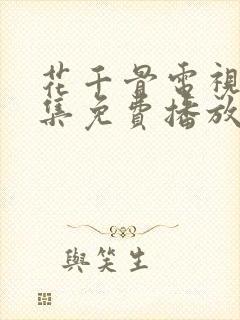 花千骨電視
集免費播放
與笑生